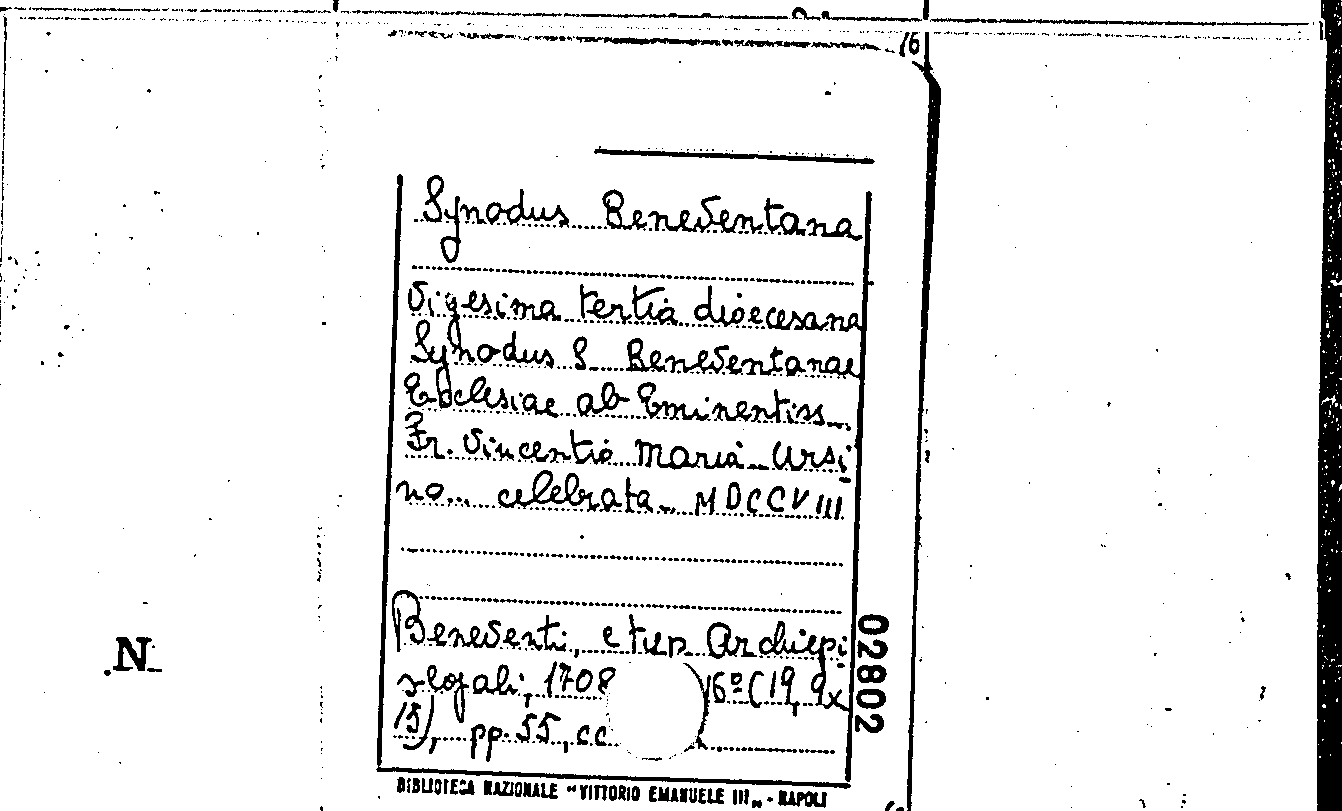 16
Synodus Beneventana
Vigesima tertia dioecesana
Synodus S. Beneventanae
Ecclesiae ab Eminentiss...
Fr. Vincentio Maria Ursi
no... celebrata... MDCCVIII
Beneventi, e typ. Archiepi
scopali, 1708 16º (19, 9x
15), pp. 55, cc
02802
N
BIBLIOTECA NAZIONALE "VITTORIO EMANUELE III" - NAPOLI